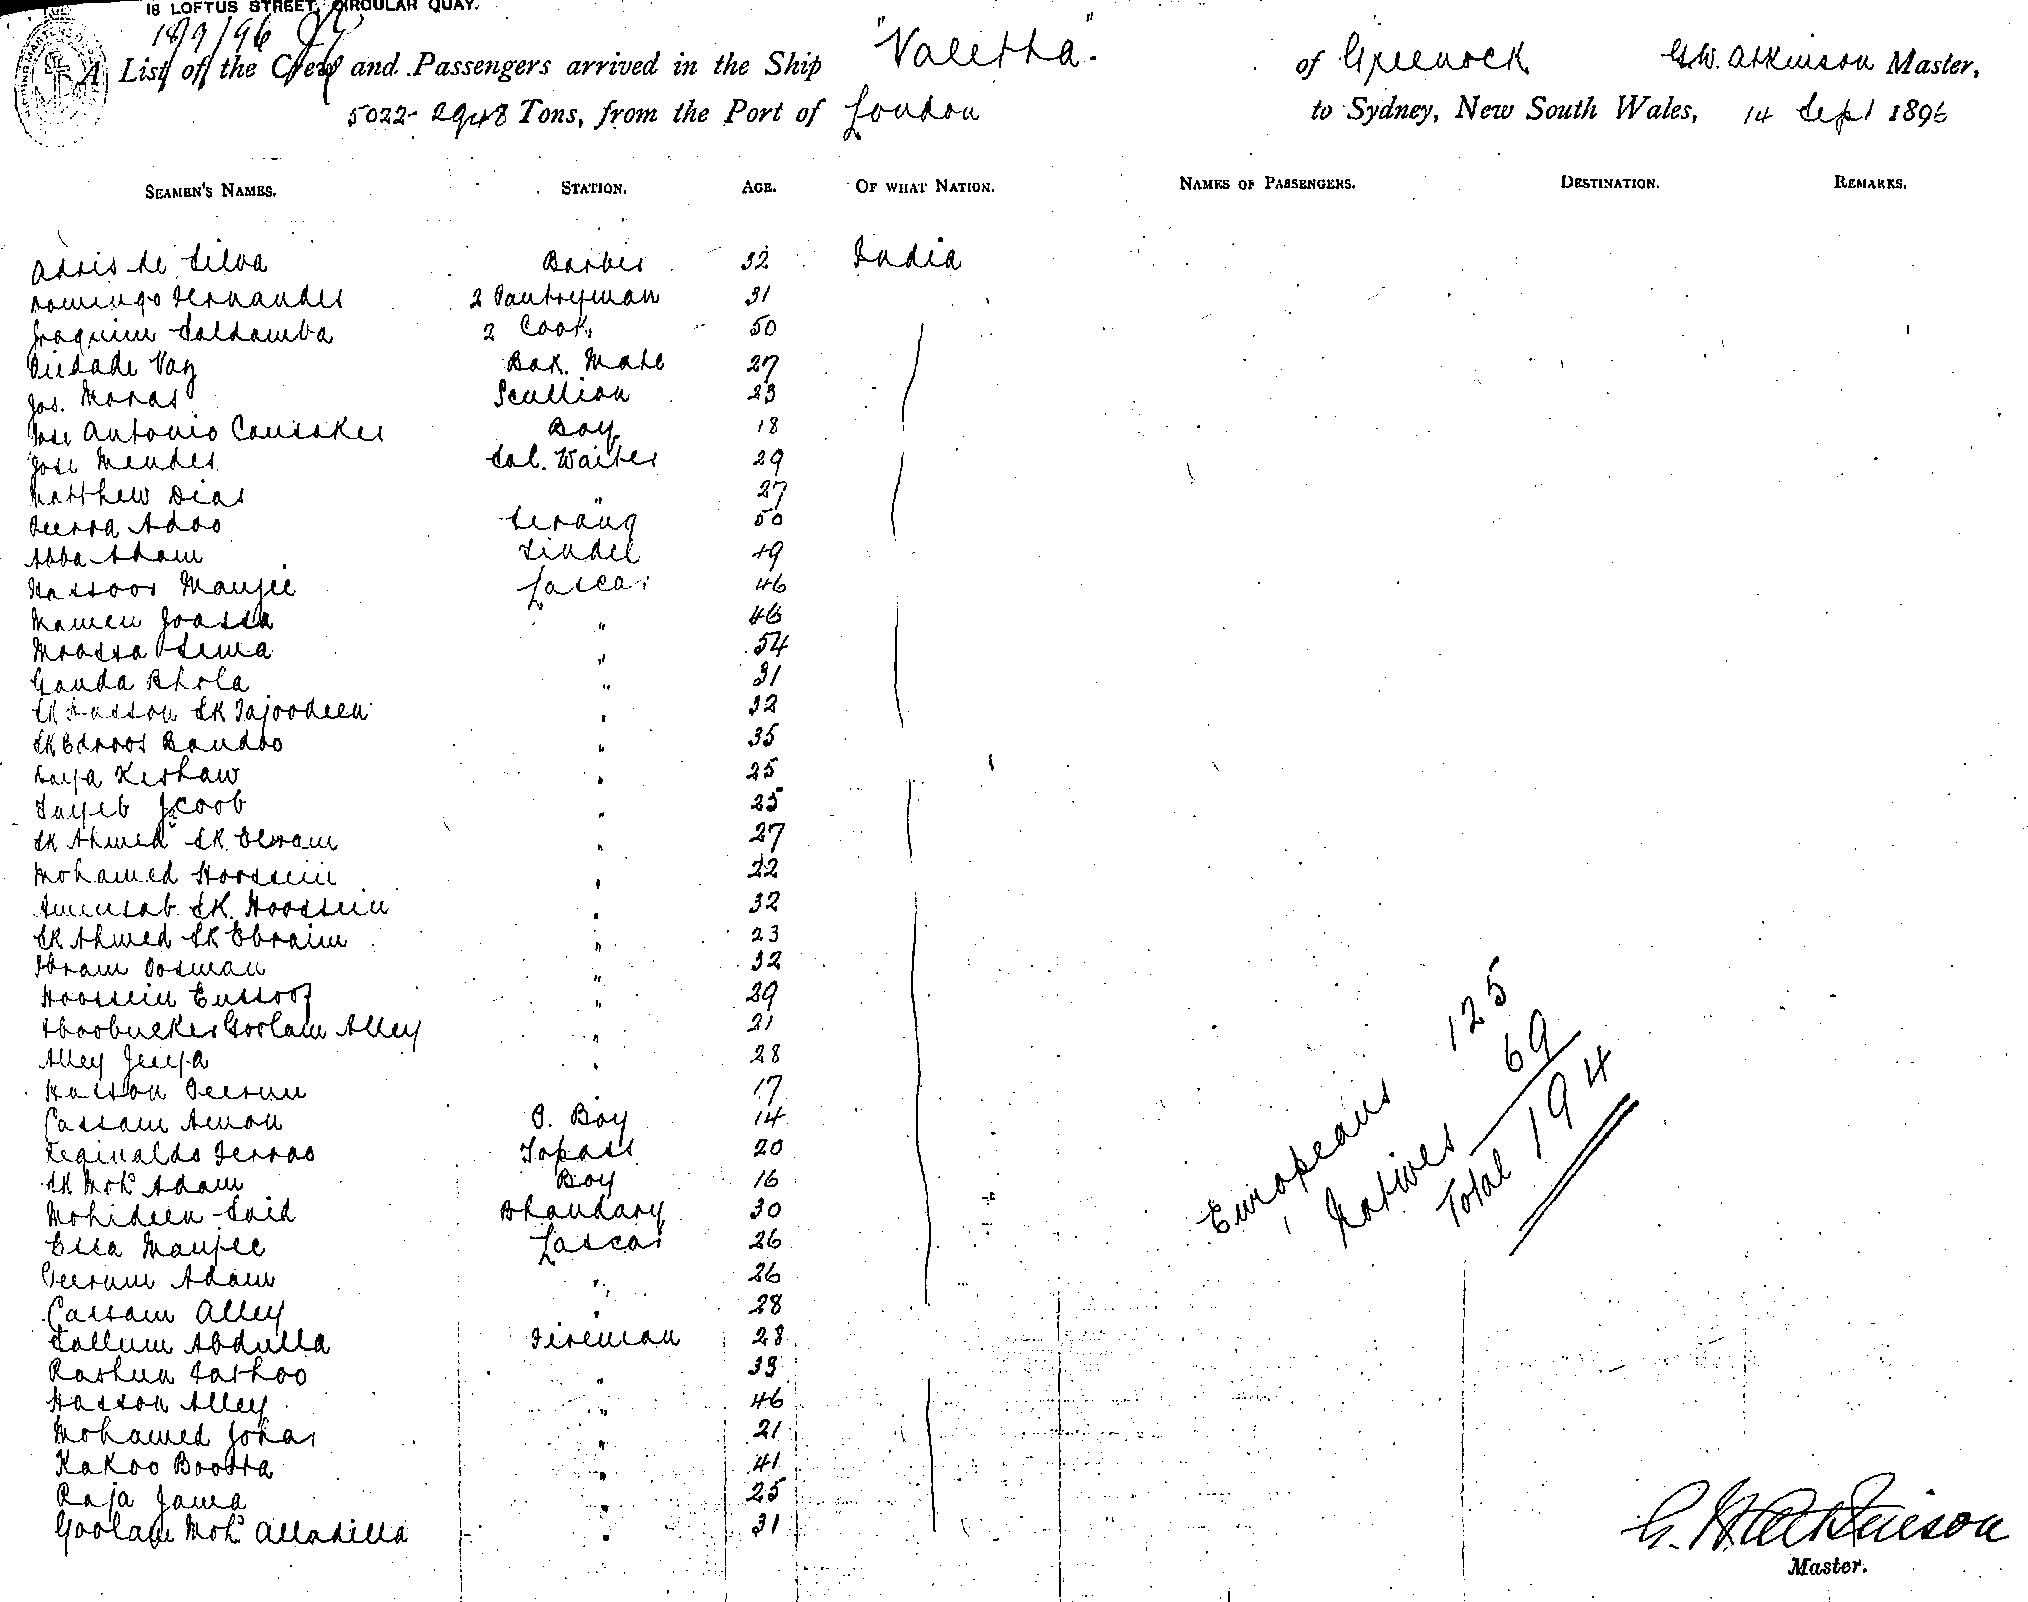 18 LOFTUS STREET, CIRCULAR QUAY.
18/9/96
A List of the Crew and Passengers arrived in the Ship "Valetta". of Greenock G.W. Atkinson Master,
5022-2948 Tons, from the Port of London to Sydney, New South Wales, 14 Sept 1896
SEAMEN'S NAMES. STATION. AGE. OF WHAT NATION. NAMES OF PASSENGERS. DESTINATION. REMARKS.
Adris de Silva Barber 32 India
Domingo Fernandes 2 Pantryman 31
Joaquim Saldamba 2 Cook 50
Piedade Vaz Bak. Mate 27
Jos. Moras Scullion 23
Jose Antonio Boy 18
Jose Mendes Sal. Waiter 29
Matthew Dias " 27
Adoo Serang 50
Abba Adam Tindel 49
Hassoor Manjee Lascar 46
Mamen Joossa " 46
Moossa Sema " 54
Ganda Bhola " 31
Sk Hasson Sk Tajoodeen " 32
Sk Edroos Bandoo " 35
Kershaw " 25
Tayeb Jacoob " 25
Sk Ahmed Sk Ebram " 27
Mohamed Hoossein " 22
Amensab Sk. Hoossein " 32
Sk Ahmed Sk Ebraim " 23
Ibram Oosman " 32
Hoossein Eussoof " 29
Aboobucker Goolam Alley " 21
Alley Jeeya " 28
Hasson Peerun 17
Cassam Amon P. Boy 14
Reginaldo Ferrao Topass 20
Sk Mohd Adam Boy 16
Mohideen Said Bhandary 30
Essa Manjee Lascar 26
Peerum Adam " 26
Cassam Alley " 28
Sallum Abdulla Fireman 28
" 33
Hasson Alley " 46
Mohamed Johar " 21
Kakoo Boosta " 41
Raja Jama " 25
Goolam Mohd Alladilla " 31
Europeans 125
Natives 69
Total 194
G. W Atkinson
Master.